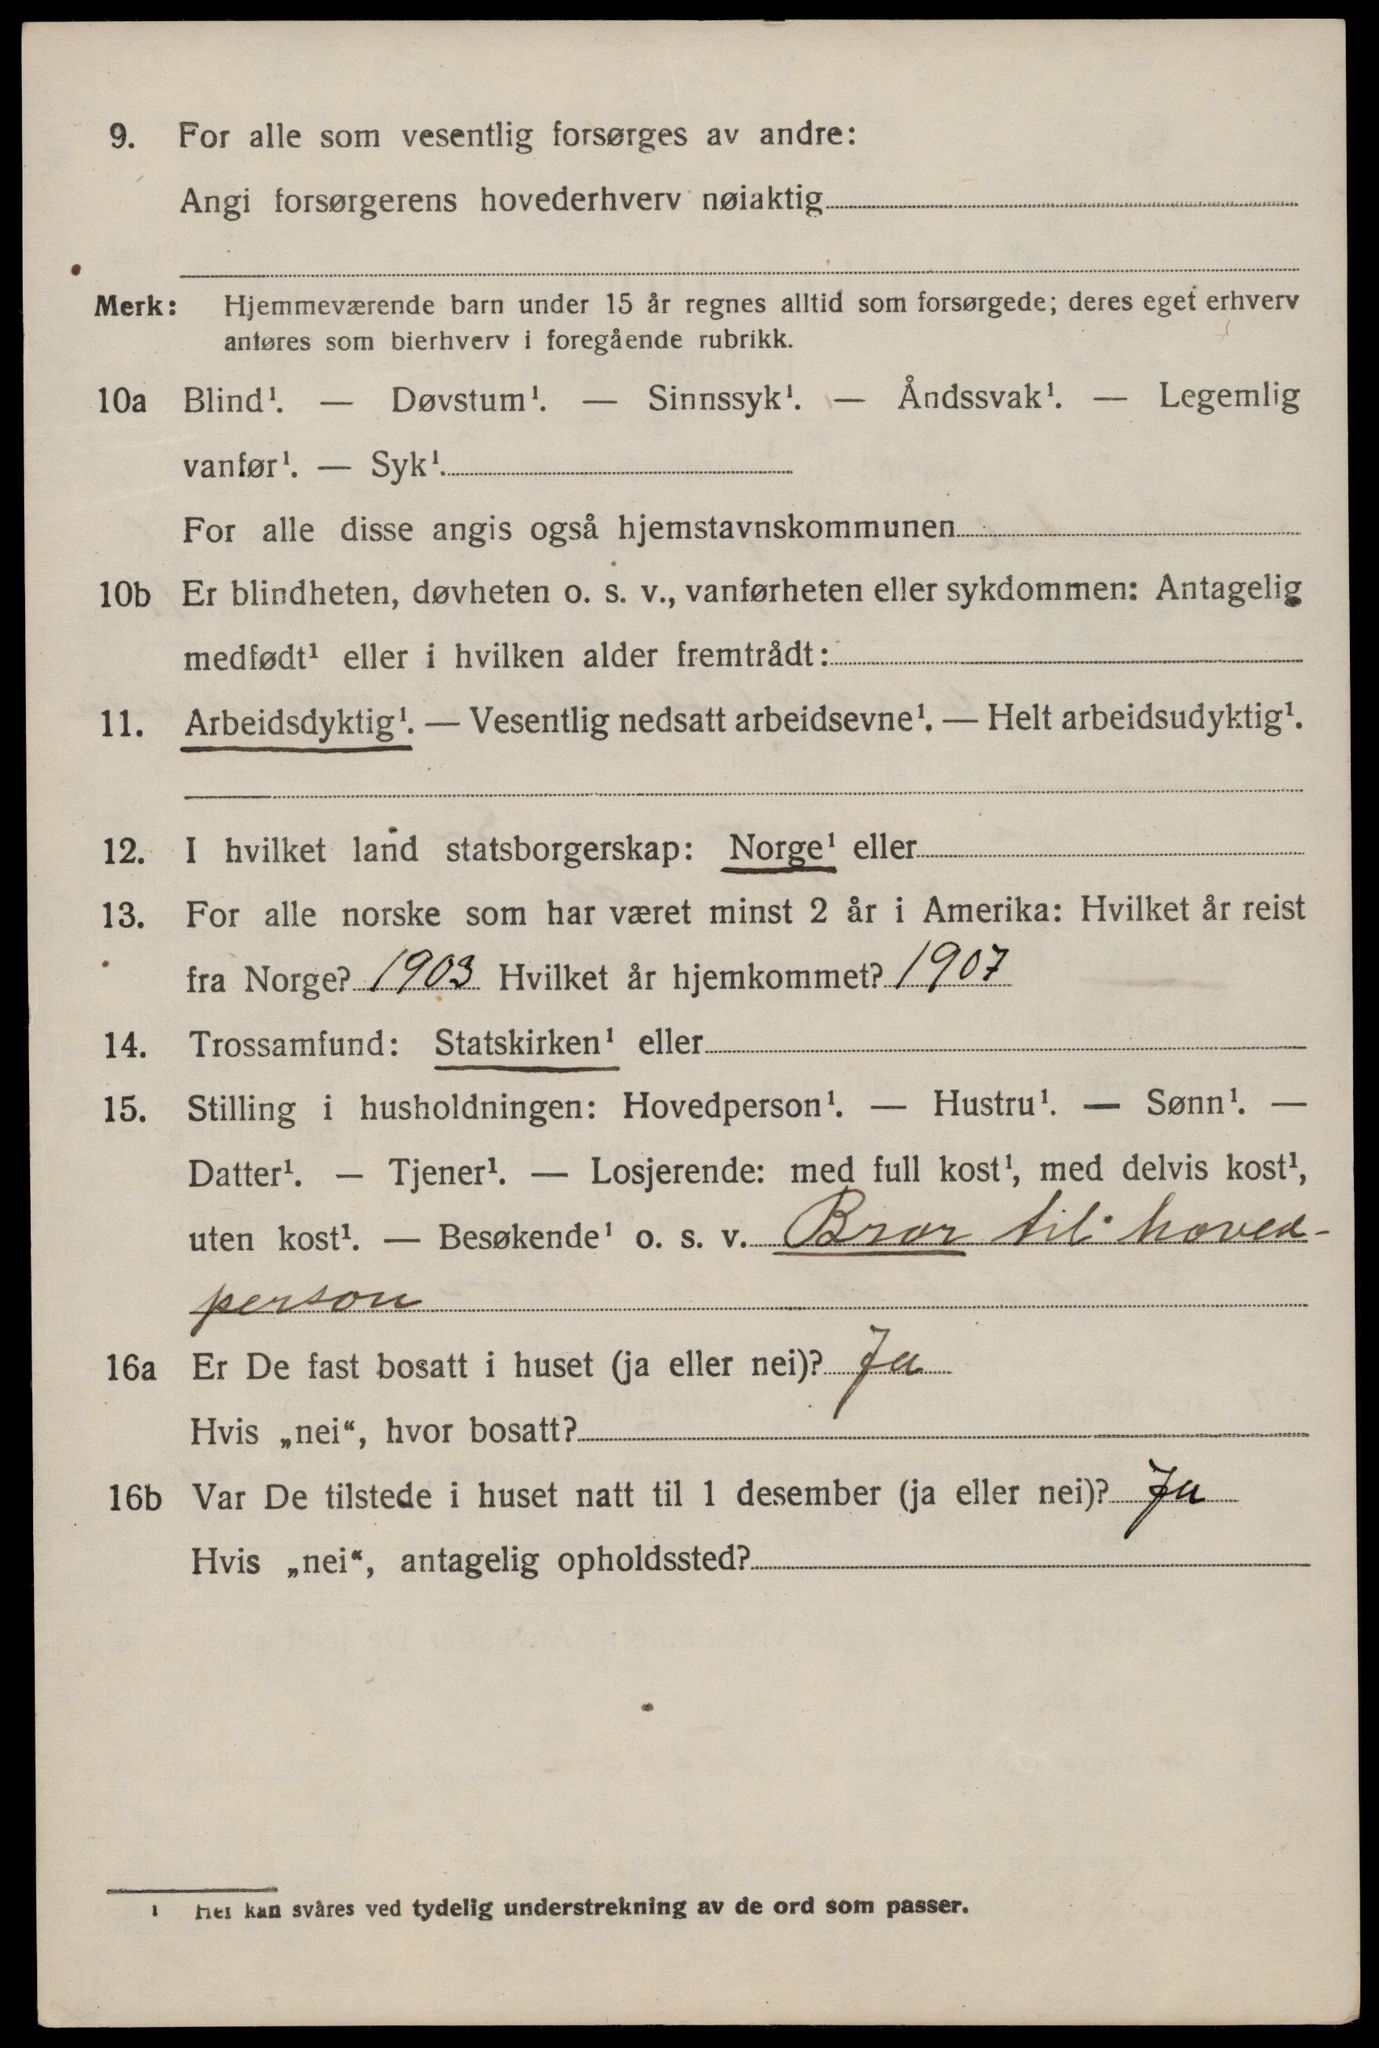 9. For alle som vesentlig forsørges av andre:
Angi forsørgerens hovederhverv nøiaktig
Merk: Hjemmeværende barn under 15 år regnes alltid som forsørgede; deres eget erhverv
antøres som bierhverv i foregående rubrikk.
10a Blind¹. — Døvstum¹. — Sinnssyk¹. — Åndssvak¹. — Legemlig
vanfør¹. — Syk¹.
For alle disse angis også hjemstavnskommunen
10b Er blindheten, døvheten o. s. v., vanførheten eller sykdommen: Antagelig
medfødt¹ eller i hvilken alder fremtrådt:
11. Arbeidsdyktig¹. — Vesentlig nedsatt arbeidsevne¹. — Helt arbeidsudyktig¹.
12. I hvilket land statsborgerskap: Norge¹ eller
13. For alle norske som har været minst 2 år i Amerika: Hvilket år reist
fra Norge? 1903 Hvilket år hjemkommet? 1907
14. Trossamfund: Statskirken¹ eller
15. Stilling i husholdningen: Hovedperson¹. — Hustru¹. — Sønn¹. —
Datter¹. — Tjener¹. — Losjerende: med full kost¹, med delvis kost¹,
uten kost¹. — Besøkende¹ o. s. v. Bror til hoved-
person
16a Er De fast bosatt i huset (ja eller nei)? Ja
Hvis „nei“, hvor bosatt?
16b Var De tilstede i huset natt til 1 desember (ja eller nei)? Ja
Hvis „nei“, antagelig opholdssted?
¹ Her kan svåres ved tydelig understrekning av de ord som passer.